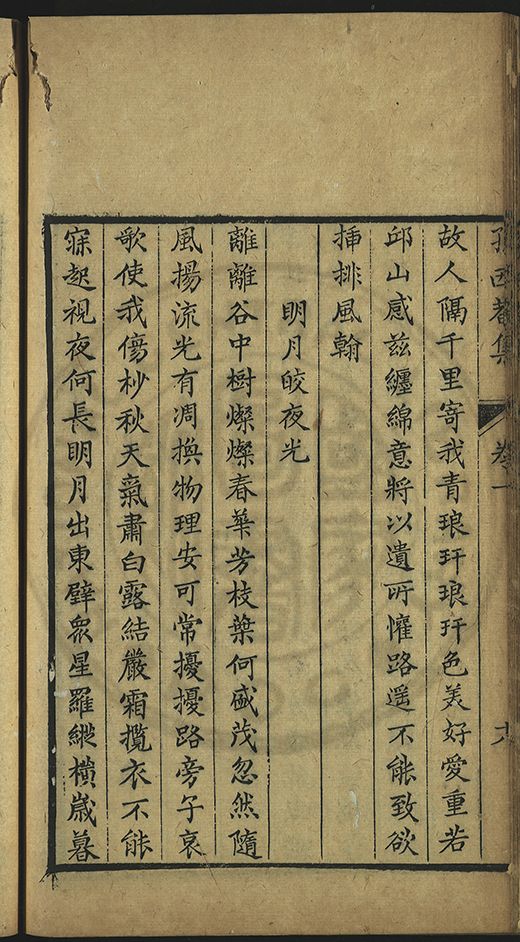 孫西菴集 卷一
故人隔千里寄我青琅玕琅玕色美好愛重若
邱山感兹纏綿意將以遺所懽路遥不能致欲
揷排風翰
明月皎夜光
離離谷中樹燦燦春華芳枝葉何盛茂忽然隨
風揚流光有凋換物理安可常擾擾路旁子哀
歌使我傷杪秋天氣肅白露結嚴霜攬衣不能
寐起視夜何長明月出東壁衆星羅縱橫歳暮